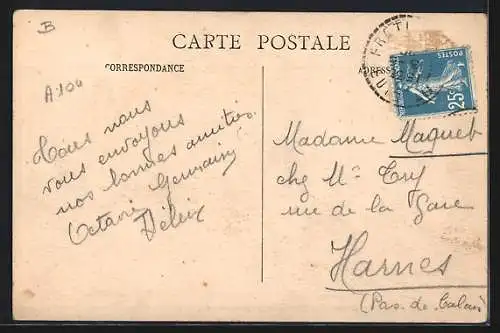 B
CARTE POSTALE
CORRESPONDANCE
ADRESSE
A 104
POSTES
25c
Nous vous
vous envoyons
nos bonnes amitiés
Germain
Octavie
Madame Maquet
chez Mr
rue de la Gare
Harnes
(Pas. de Calais)